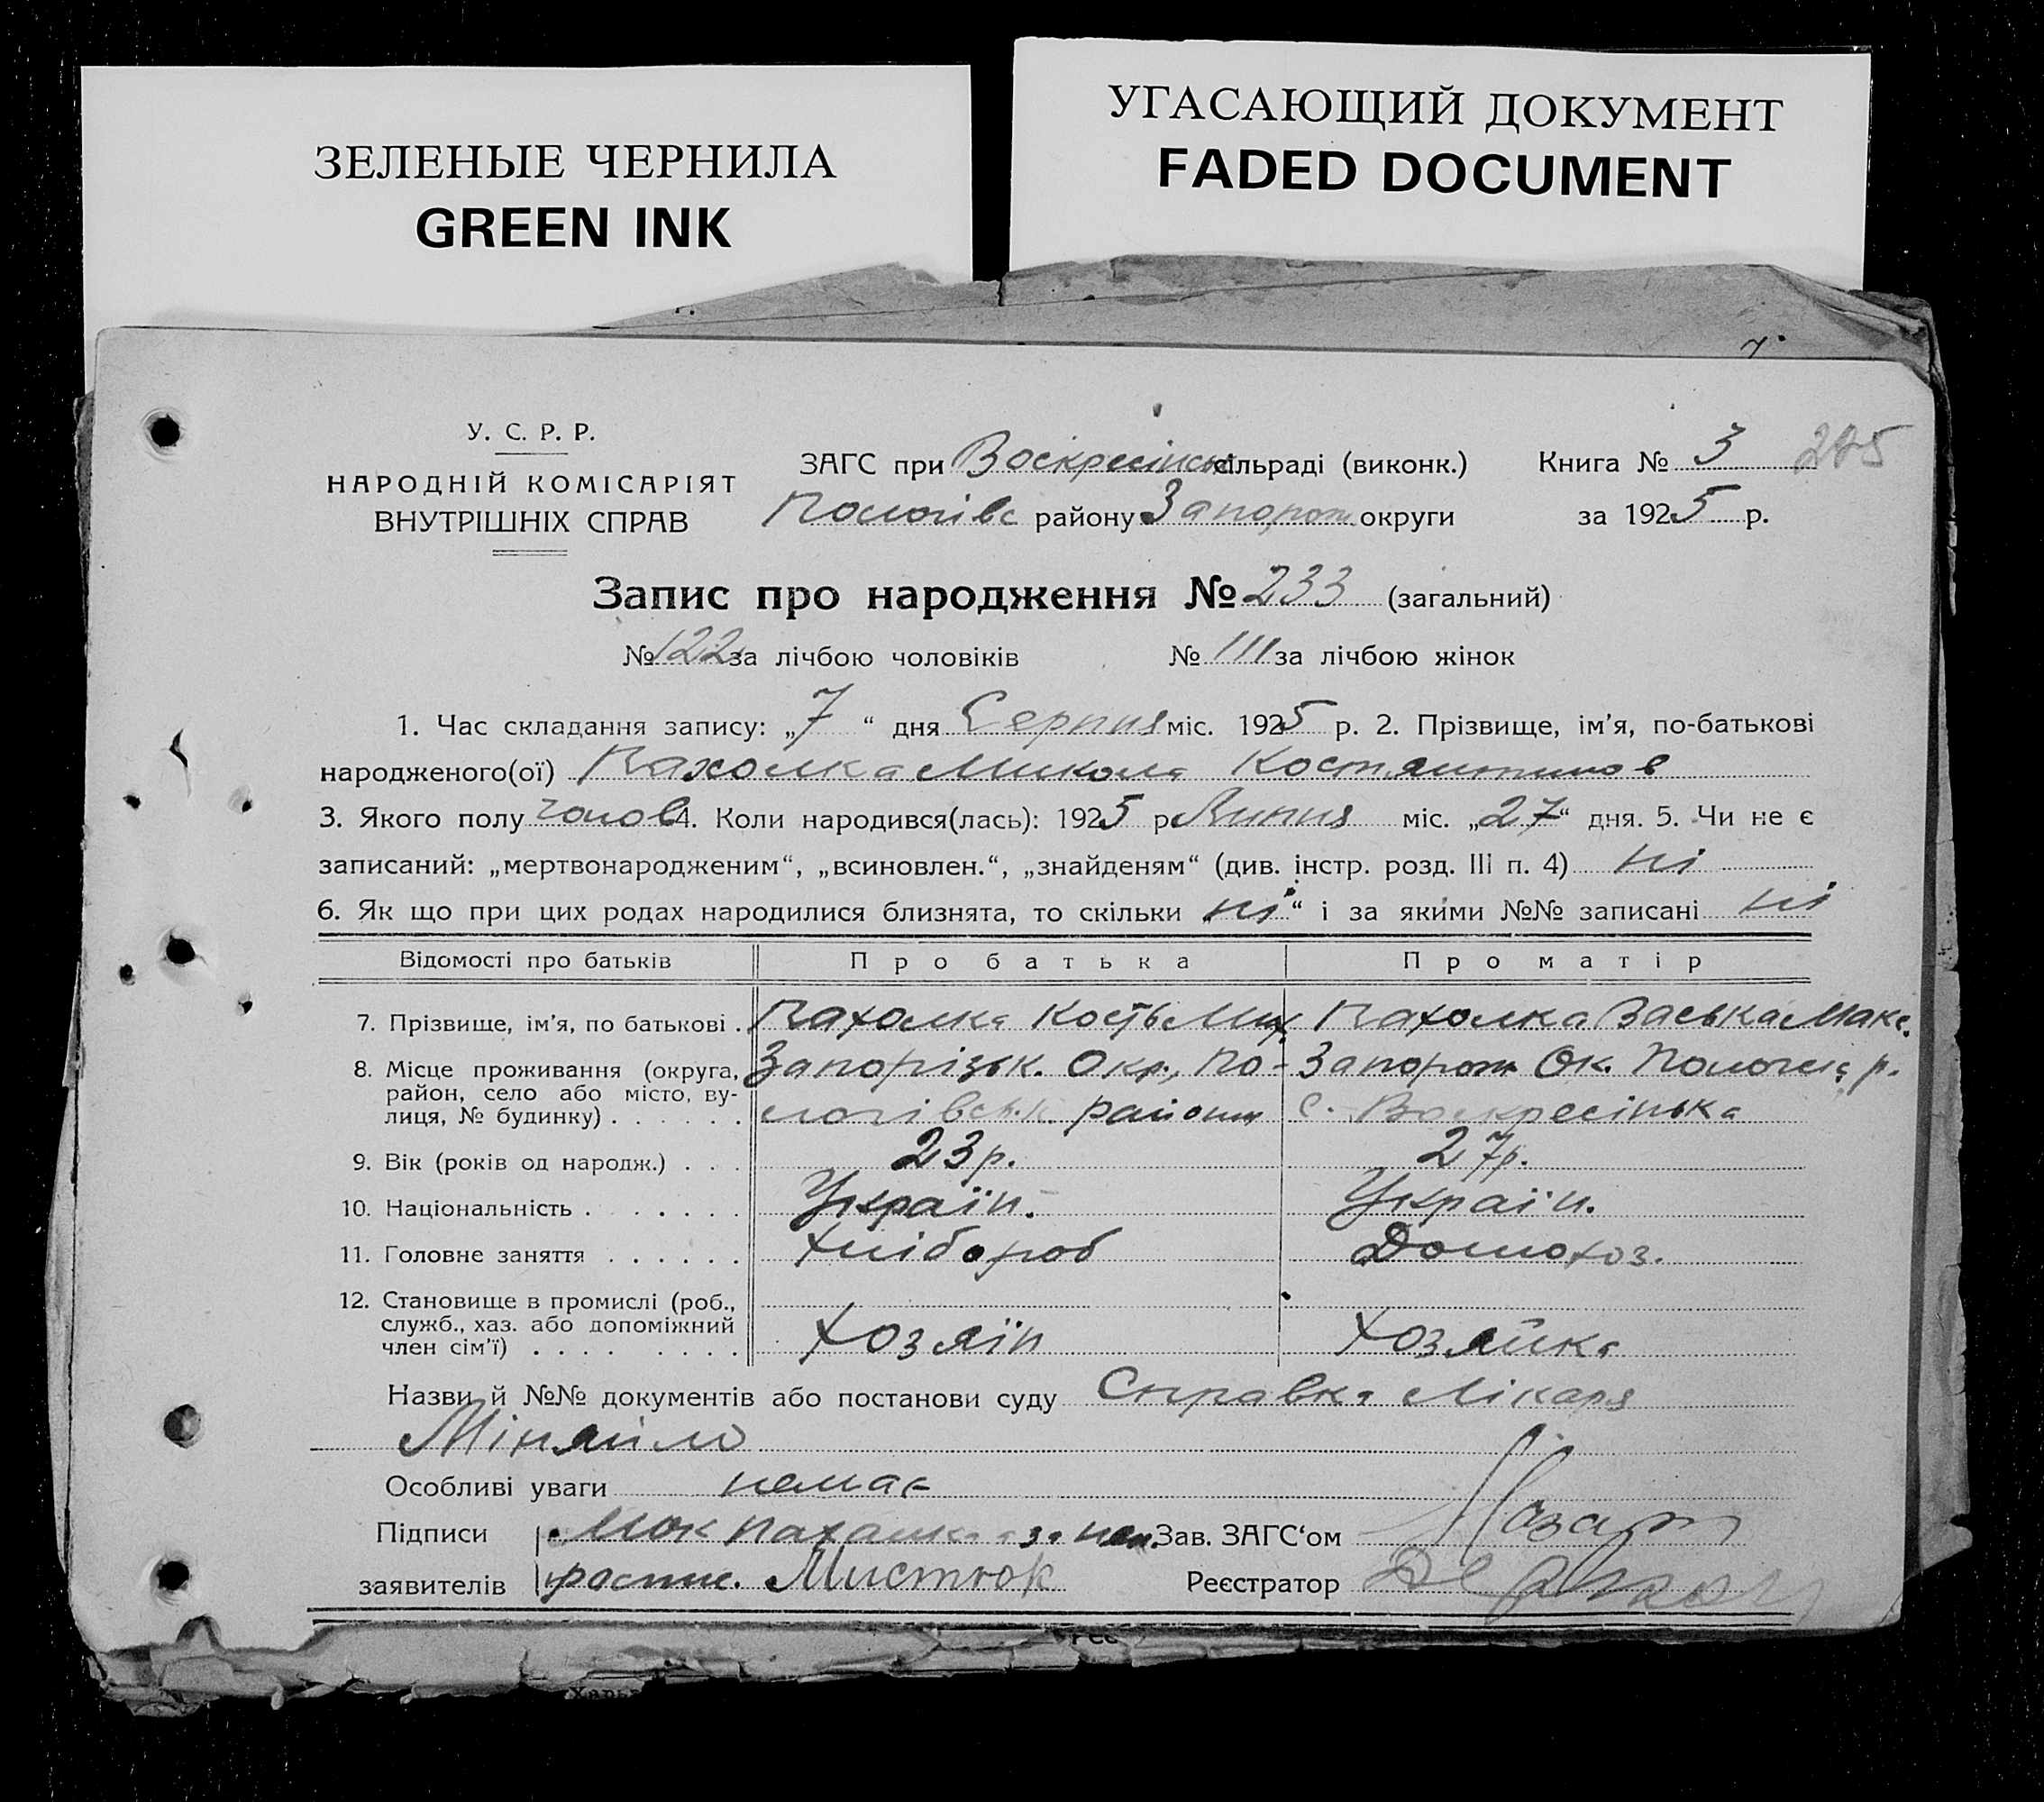 ЗЕЛЕНЫЕ ЧЕРНИЛА
GREEN INK
УГАСАЮЩИЙ ДОКУМЕНТ
FADED DOCUMENT
У. С. Р. Р.
НАРОДНІЙ КОМІСАРІЯТ
ВНУТРІШНІХ СПРАВ
ЗАГС при Воскресінськ сільраді (виконк.) Книга № 3 225
Пологівс району Запорож округи за 1925 р.
Запис про народження № 233 (загальний)
№ 122 за лічбою чоловіків № 111 за лічбою жінок
1. Час складання запису: „7“ дня Серпня міс. 1925 р. 2. Прізвище, ім’я, по-батькові
народженого(ої) Пахолка Микола Костянтинов
3. Якого полу чолов 4. Коли народився(лась): 1925 р Липня міс. „27“ дня. 5. Чи не є
записаний: „мертвонародженим“, „всиновлен.“, „знайденям“ (див. інстр. розд. III п. 4) ні
6. Як що при цих родах народилися близнята, то скільки „ні“ і за якими №№ записані ні
Відомості про батьків Про батька Про матір
7. Прізвище, ім’я, по батькові . Пахолка Кость Мих Пахолка Васька Макс.
8. Місце проживання (округа, район, село або місто, вулиця, № будинку) . . . . . . Запорізьк. Окр., По- Запорож Ок. р.
логівськ району с. Воскресінька
9. Вік (років од народж.) . . . 23 р. 27 р.
10. Національність . . . . . . . Україн. Україн.
11. Головне заняття . . . . . . Хлібороб Домохоз.
12. Становище в промислі (роб.,
служб., хаз. або допоміжний
член сім’ї) . . . . . . . . Хозяїн Хозяйка
Назви й №№ документів або постанови суду Справка Лікаря
Міняйло
Особливі уваги немає
Підписи Пахолка а за Зав. ЗАГС‘ом
заявителів роспис. Мистюк Реєстратор